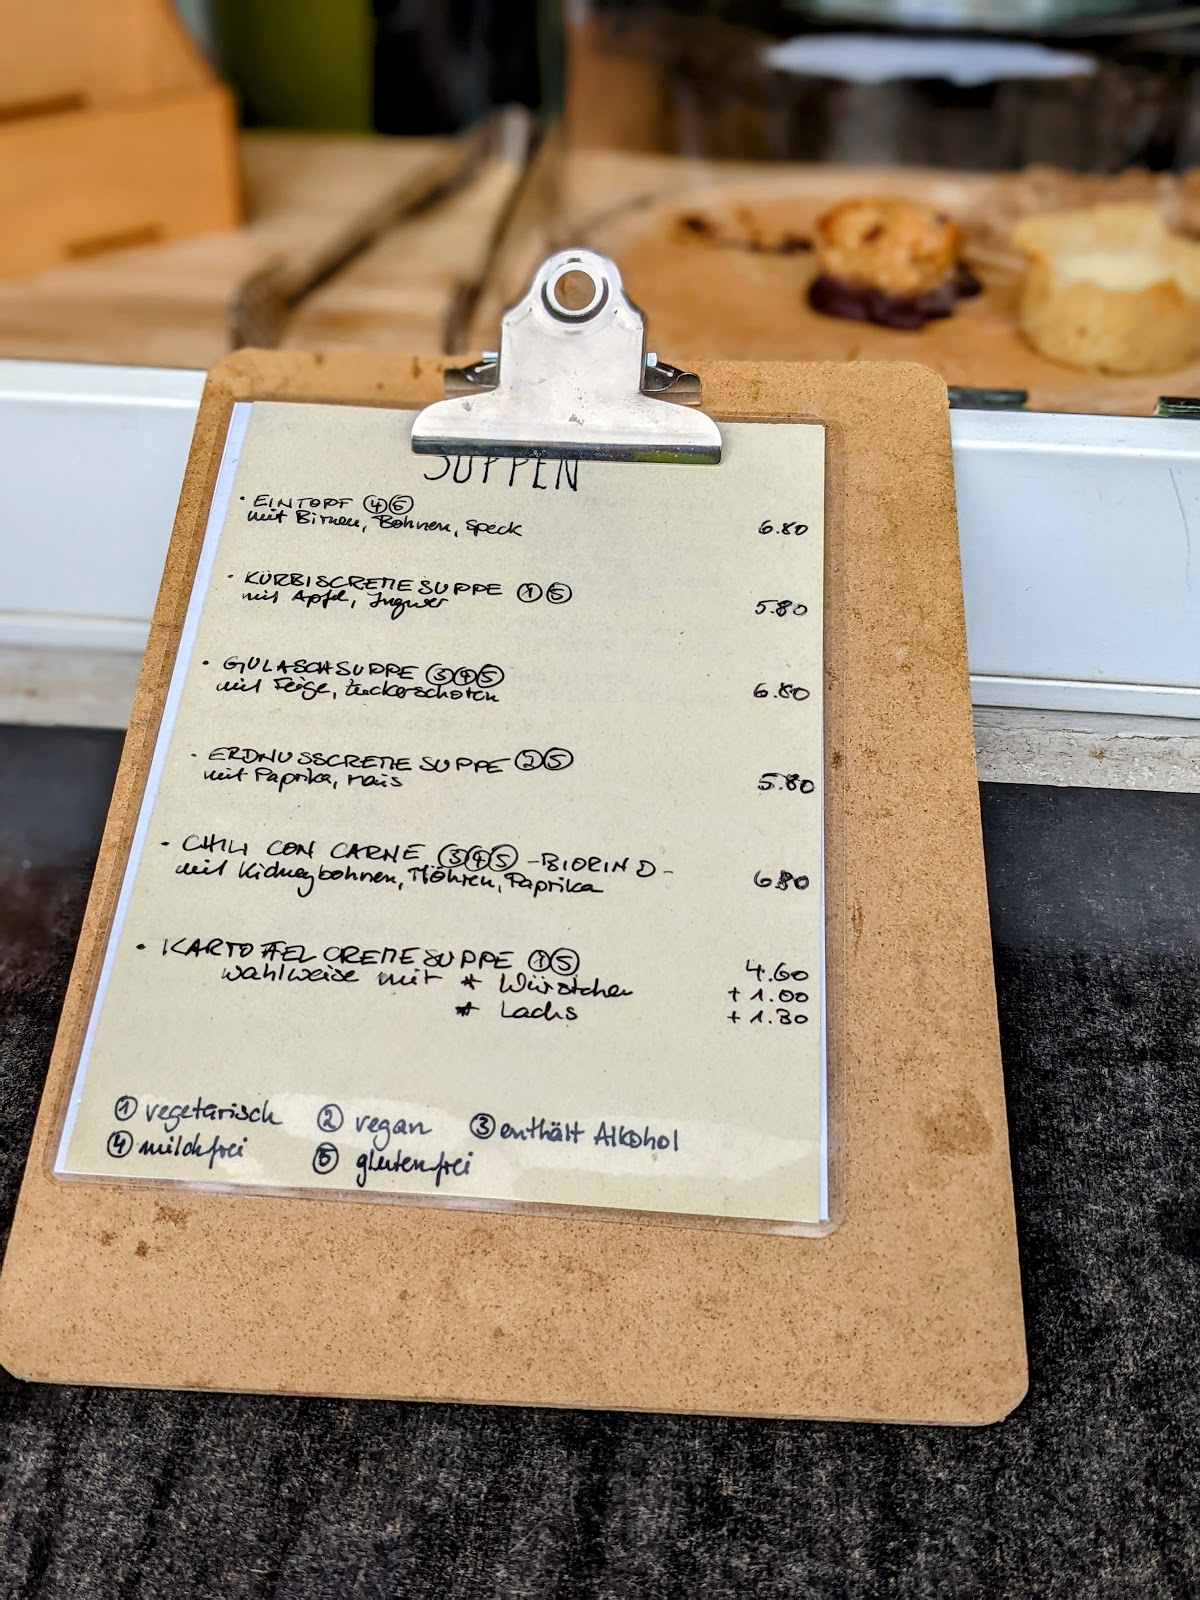 SUPPEN
· EINTOPF ④⑤
mit Birnen, Bohnen, Speck 6.80
· KÜRBISCREMESUPPE ①⑤
mit Apfel, Ingwer 5.80
· GULASCHSUPPE ③④⑤
mit Feige, Zuckerschoten 6.80
· ERDNUSSCREMESUPPE ②⑤
mit Paprika, Mais 5.80
· CHILI CON CARNE ③④⑤ -BIORIND-
mit Kidneybohnen, Möhren, Paprika 6.80
· KARTOFFELCREMESUPPE ①⑤ 4.60
wahlweise mit * Würstchen + 1.00
* Lachs + 1.30
① vegetarisch ② vegan ③ enthält Alkohol
④ milchfrei ⑤ glutenfrei